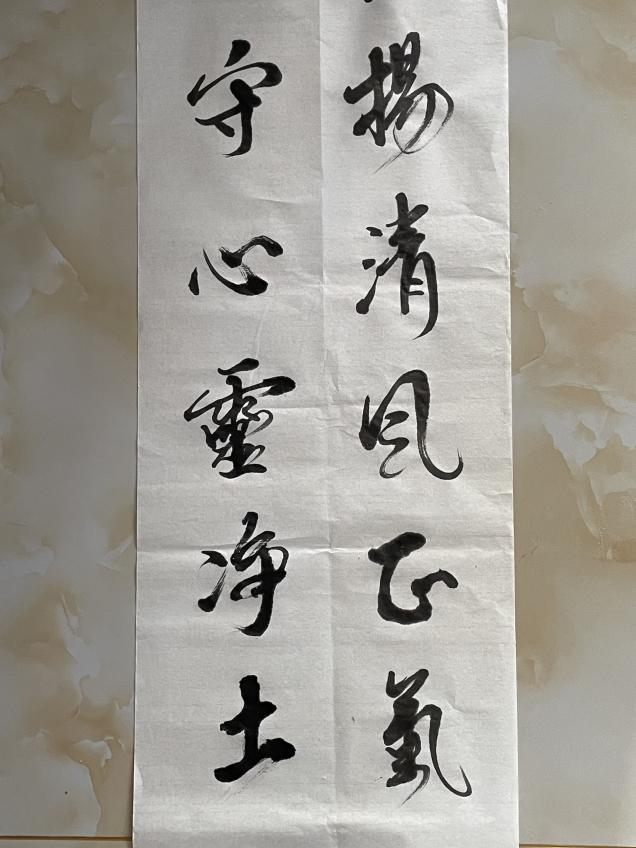 揚清风正氣
守心靈净土